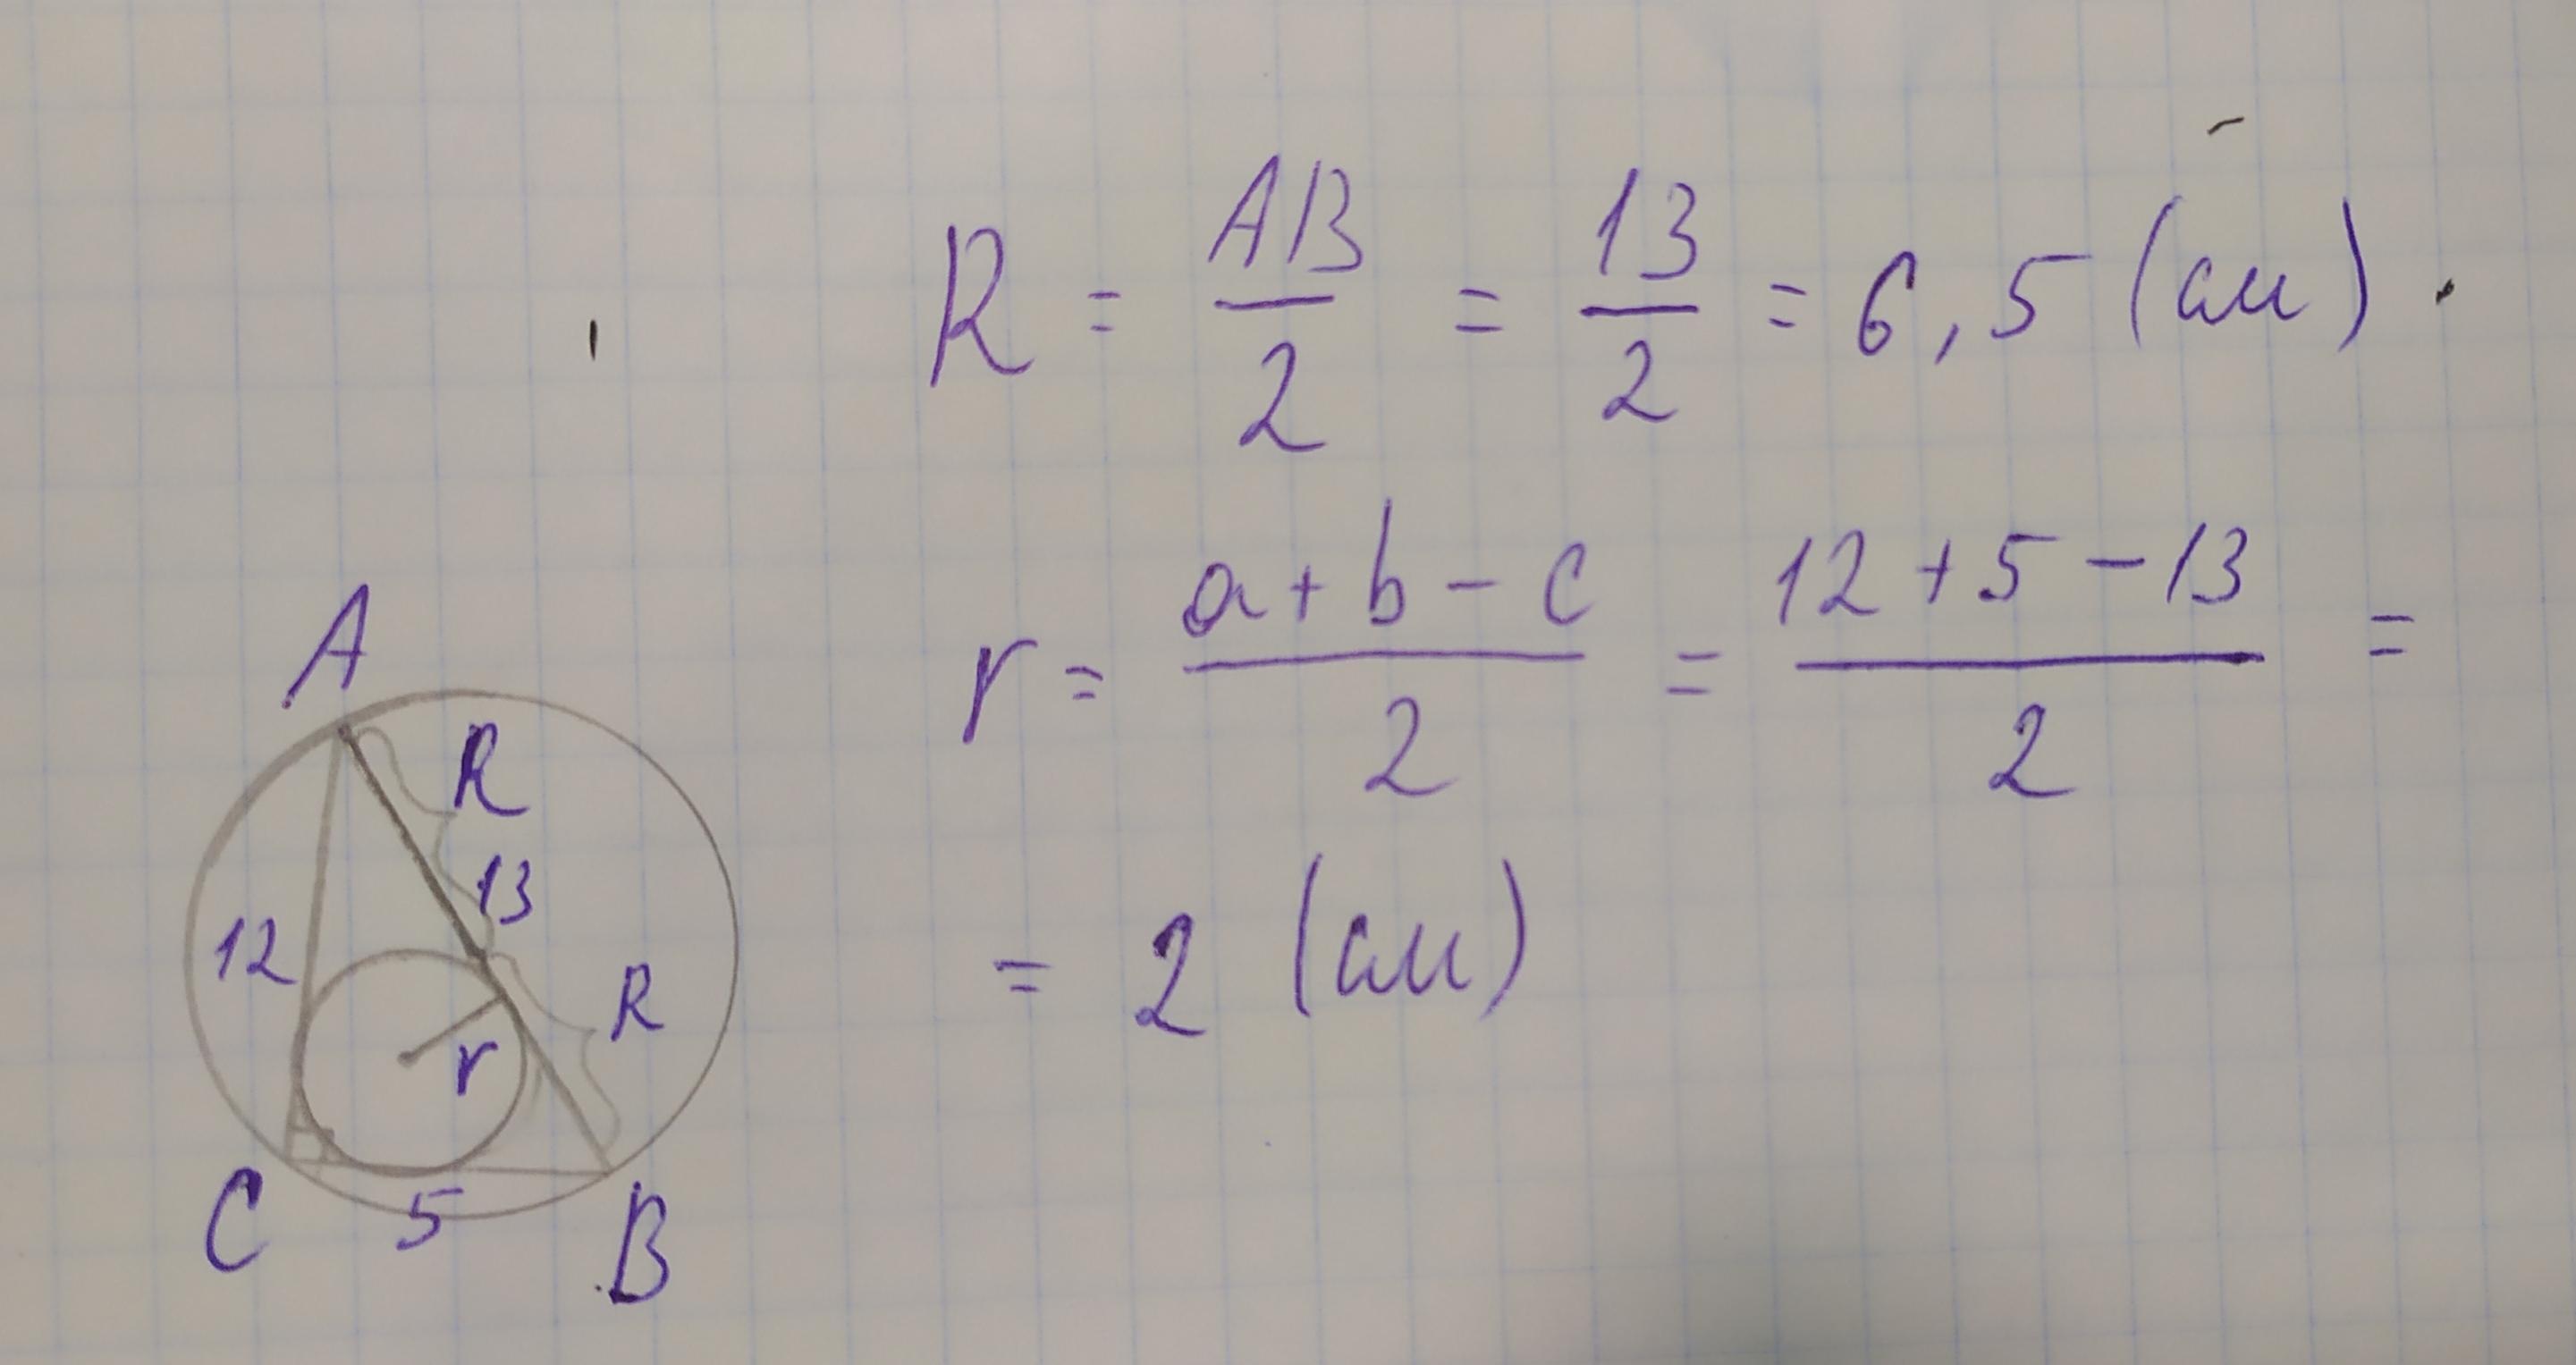 R = AB/2 = 13/2 = 6,5 (см).
r = a + b - c / 2 = 12 + 5 - 13 / 2 =
= 2 (см)
A
R
13
12
R
r
C
5
B